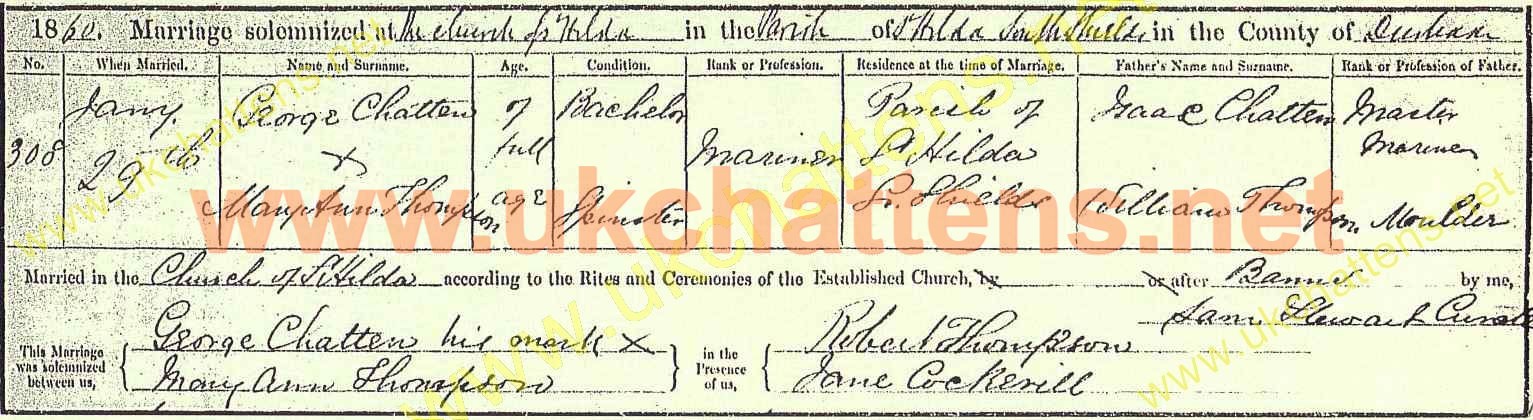 1860. Marriage solemnized at the church of St Hilda in the Parish of St Hilda South Shields in the County of Durham
No. When Married. Name and Surname. Age. Condition. Rank or Profession. Residence at the time of Marriage. Father's Name and Surname. Rank or Profession of Father.
Jany. George Chatten of Bachelor Parish of Isaac Chatten Master
308 29th x full Mariner St Hilda Mariner
Mary Ann Thompson age Spinster So. Shields William Thompson Moulder
www.ukchattens.net
Married in the Church of St Hilda according to the Rites and Ceremonies of the Established Church, by or after Banns by me,
Saml Stewart Curate
This Marriage was solemnized between us, George Chatten his mark x in the Presence of us, Robert Thompson
Mary Ann Thompson Jane Cockerill
www.ukchattens.net
www.ukchattens.net
www.ukchattens.net
www.ukchattens.net